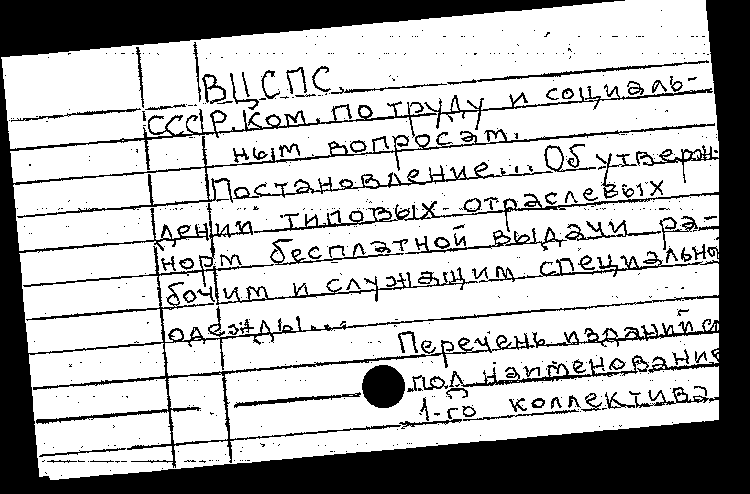 ВЦСПС.
СССР. Ком. по труду и социаль-
ным вопросам.
Постановление... Об утверж-
дении типовых отраслевых
норм бесплатной выдачи ра-
бочим и служащим специально
одежды...
Перечень изданий см
под наименование
1-го коллектива